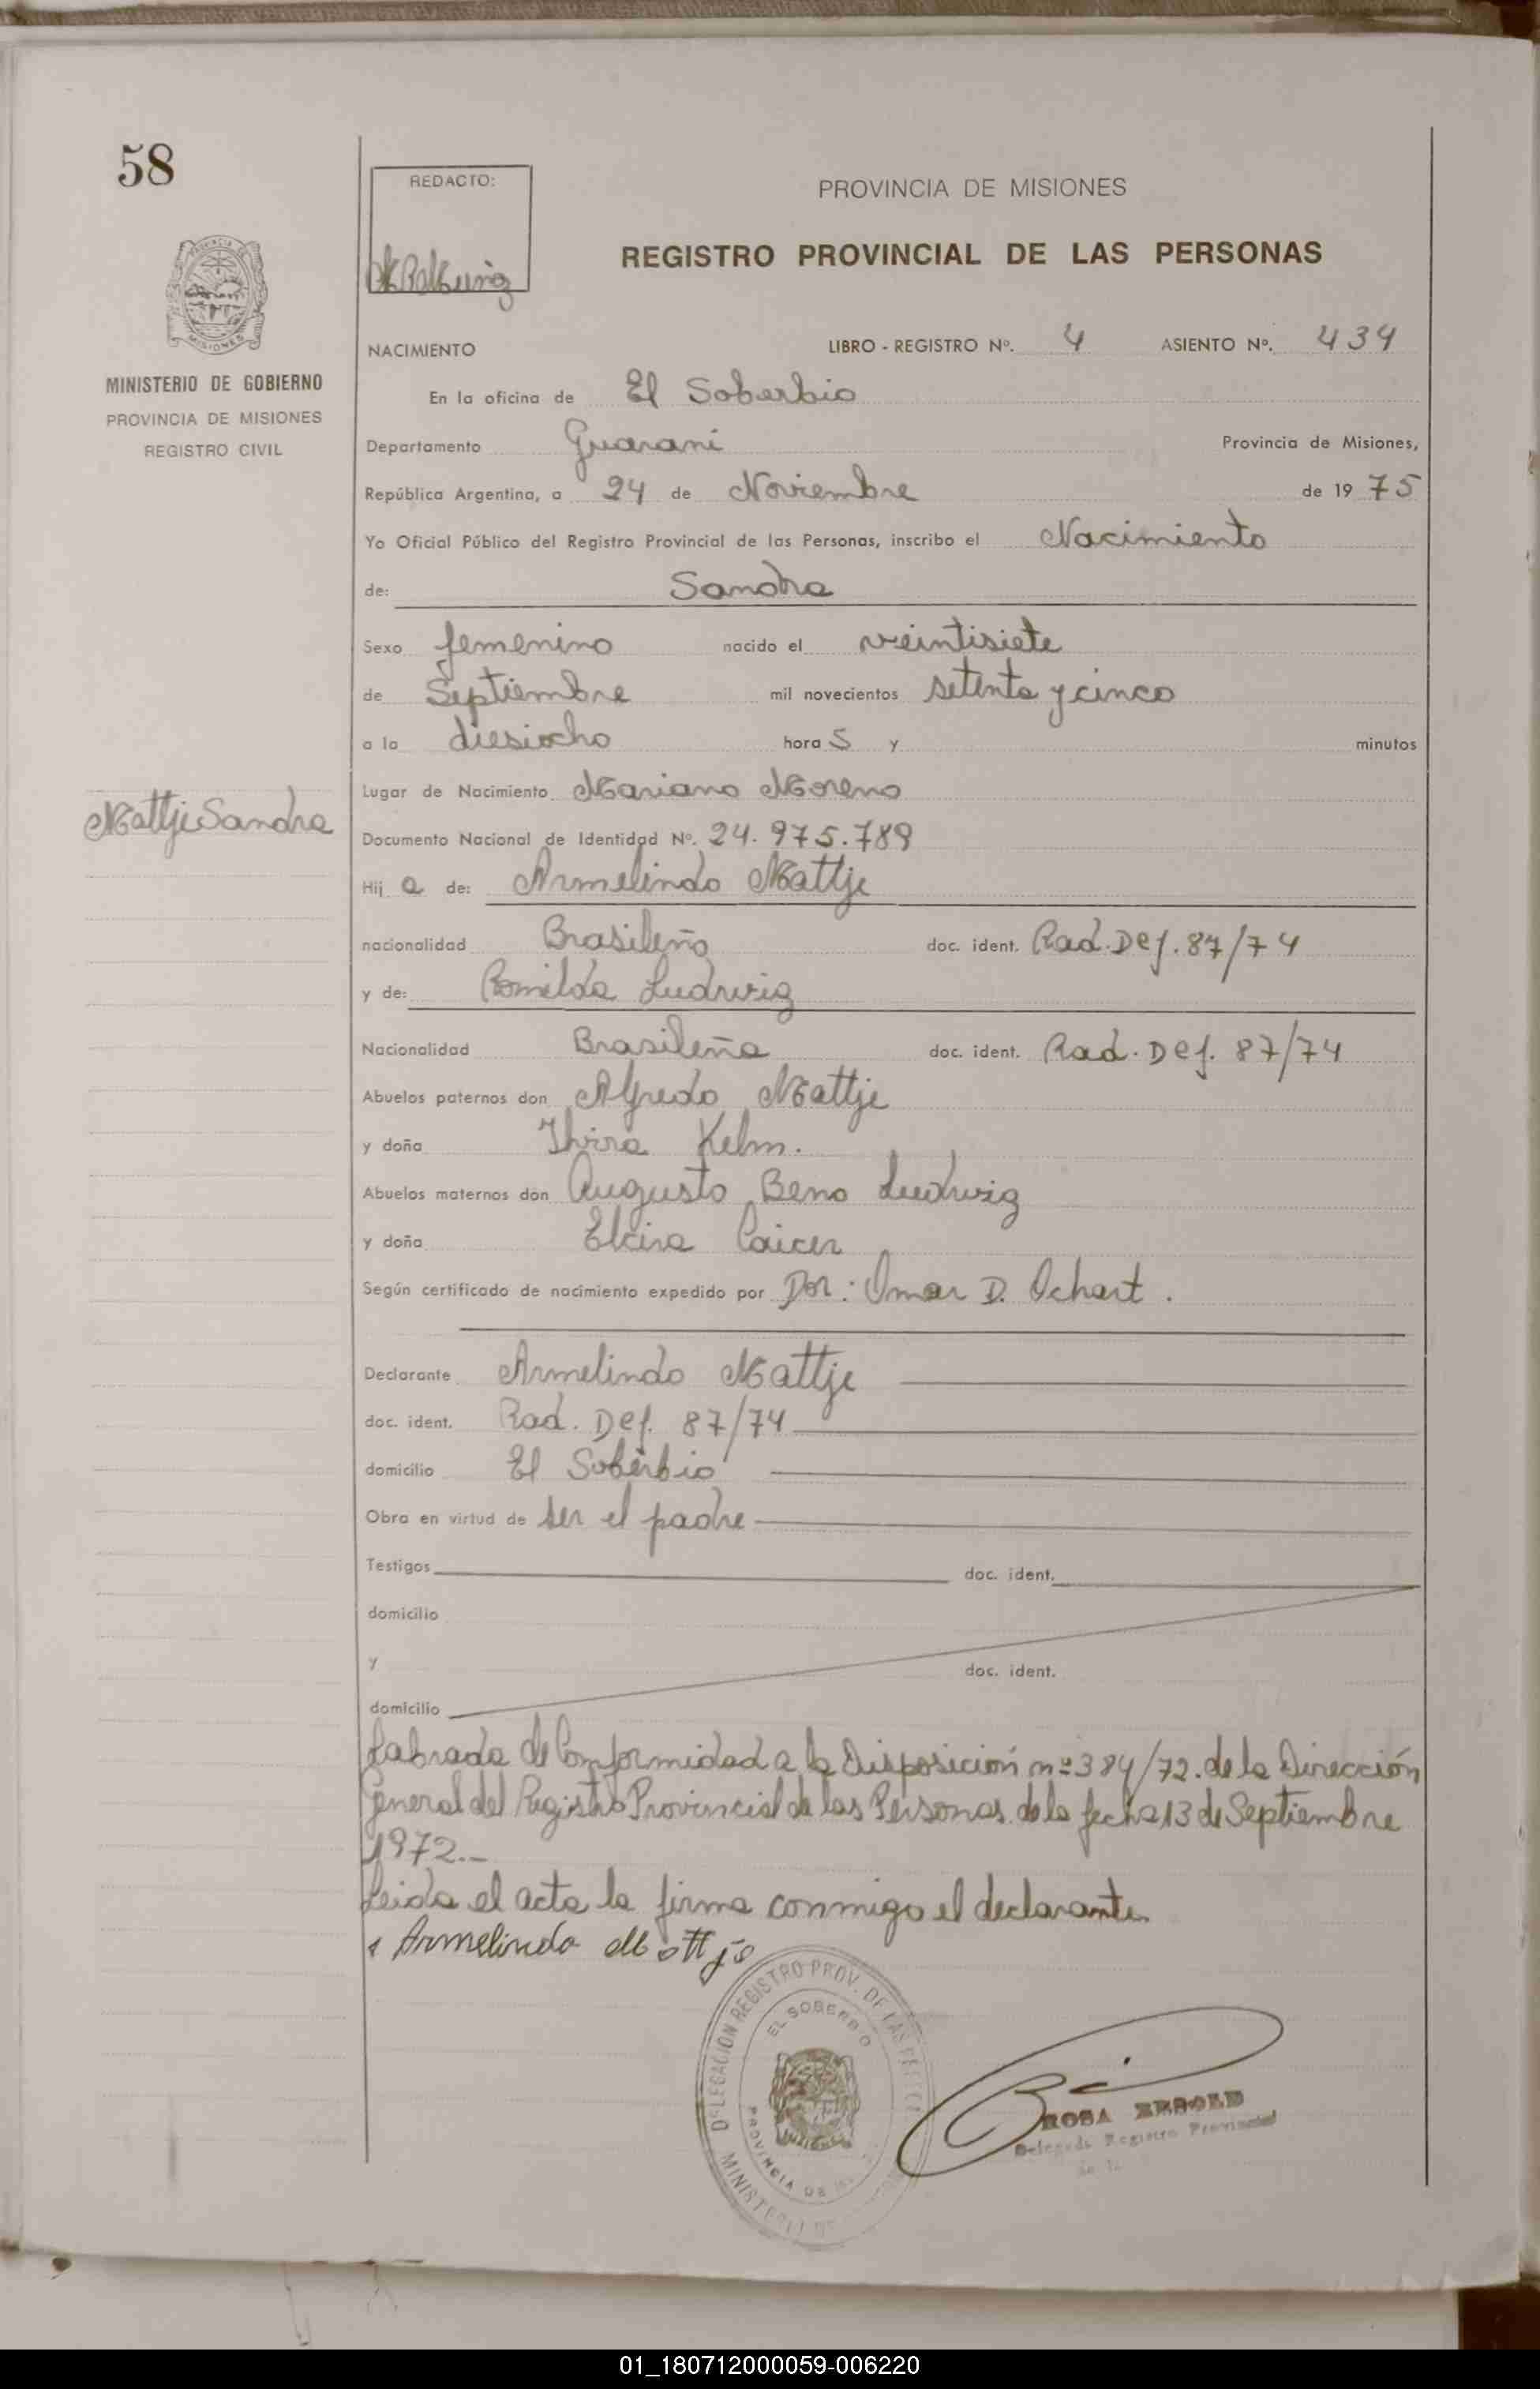 58
REDACTO:
PROVINCIA DE MISIONES
REGISTRO PROVINCIAL DE LAS PERSONAS
MISIONES
MINISTERIO DE GOBIERNO
PROVINCIA DE MISIONES
REGISTRO CIVIL
NACIMIENTO LIBRO - REGISTRO Nº. 4 ASIENTO Nº. 434
En la oficina de El Soberbio
Departamento Guarani Provincia de Misiones,
República Argentina, a 24 de Noviembre de 1975
Yo Oficial Público del Registro Provincial de las Personas, inscribo el Nacimiento
de: Sandra
Sexo femenino nacido el veintisiete
de Septiembre mil novecientos setenta y cinco
a la diesiocho hora S y minutos
Lugar de Nacimiento Mariano Moreno
Mattje Sandra
Documento Nacional de Identidad Nº. 24.975.789
Hij a de: Armelindo Mattje
nacionalidad Brasileño doc. ident. Rad. Def. 87/74
y de: Romilda Ludwig
Nacionalidad Brasileña doc. ident. Rad. Def. 87/74
Abuelos paternos don Alfredo Mattje
y doña Ilvira Kelm.
Abuelos maternos don Augusto Beno Ludwig
y doña Elcira Caicer
Según certificado de nacimiento expedido por Dor: Omar D. Ochart.
Declarante Armelindo Mattje
doc. ident. Rad. Def. 87/74
domicilio El Soberbio
Obra en virtud de ser el padre
Testigos doc. ident.
domicilio
y doc. ident.
domicilio
Labrada de Conformidad a la Disposición nº 384/72. de la Dirección
General del Registro Provincial de las Personas de la fecha 13 de Septiembre
1972.-
Leida el acta la firma conmigo el declarante
Armelindo Mottje
DELEGACION REGISTRO PROV. DE LAS
EL SOBERBIO
PROVINCIA DE
MINISTERIO DE
ROSA
Delegada Registro Provincial
de la
01_180712000059-006220